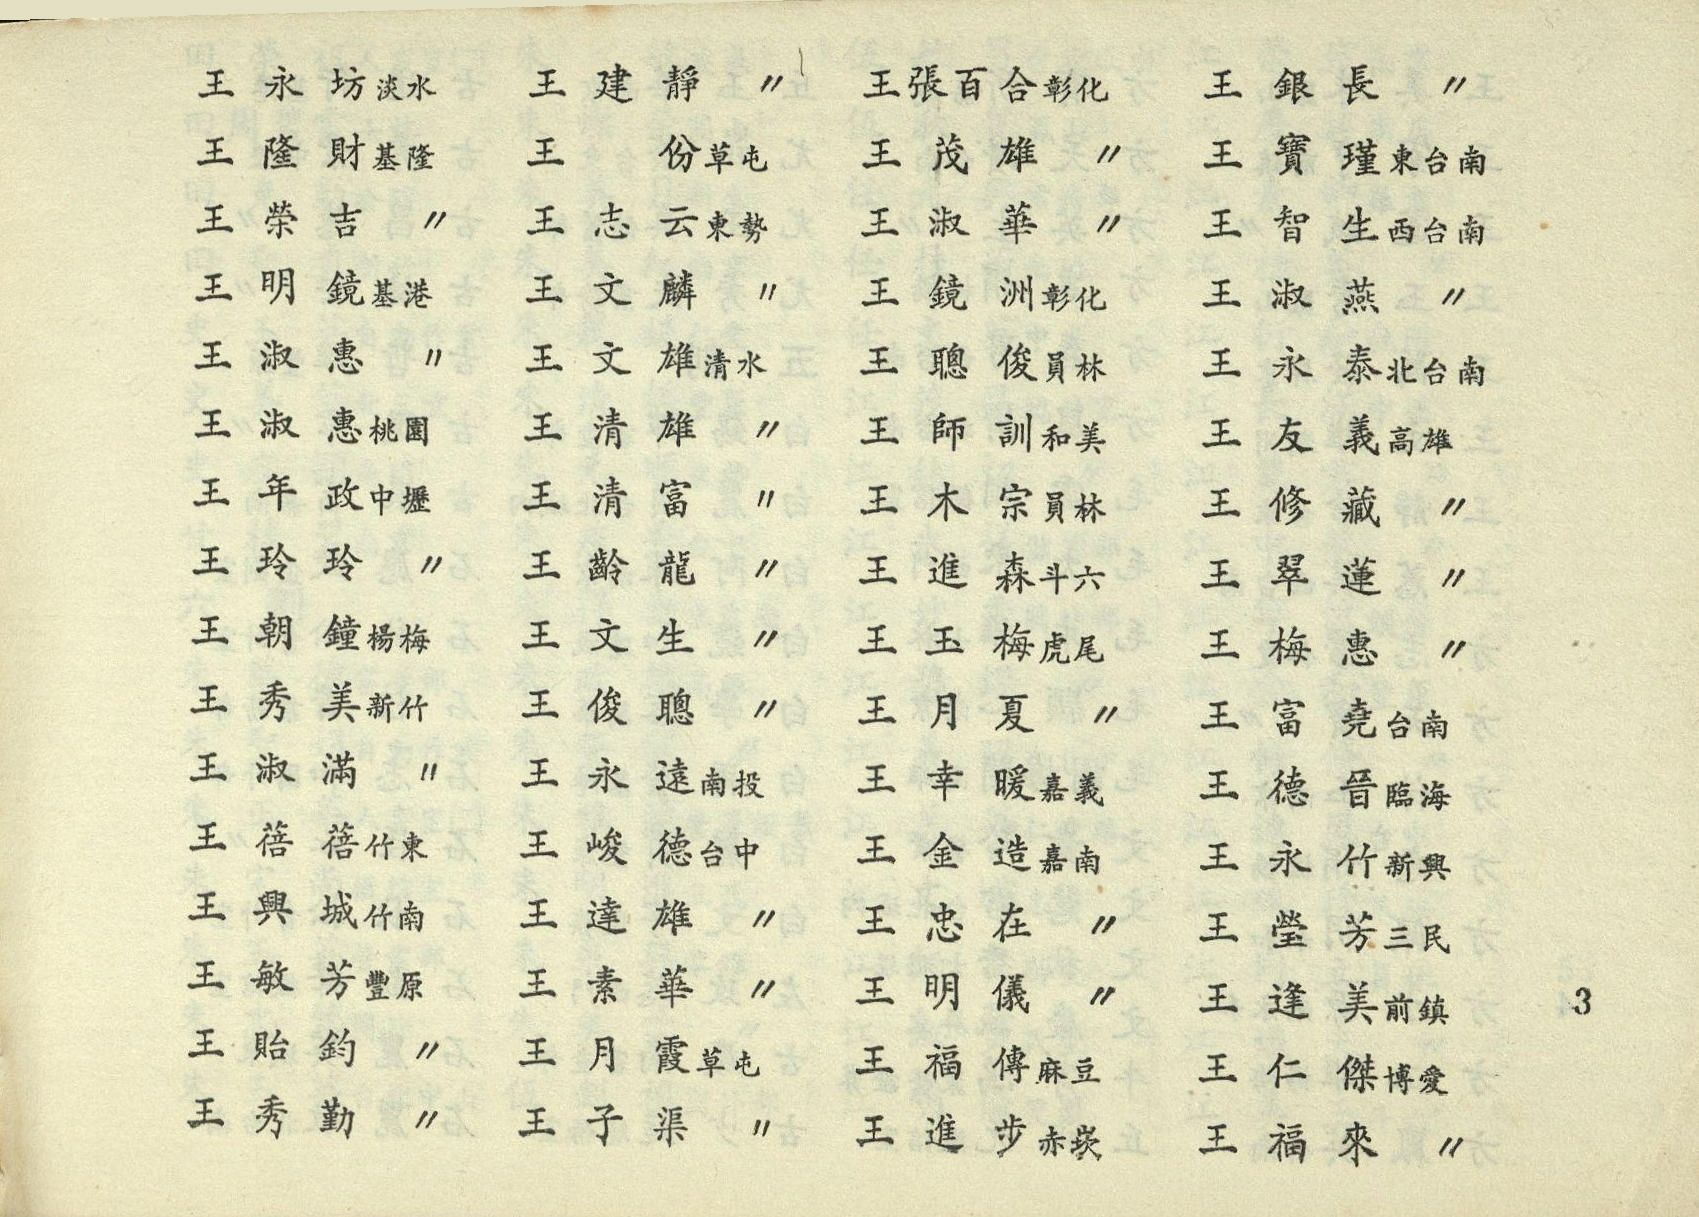 王永坊淡水
王隆財基隆
王榮吉 〃
王明鏡基港
王淑惠 〃
王淑惠桃園
王年政中壢
王玲玲 〃
王朝鐘楊梅
王秀美新竹
王淑滿 〃
王蓓蓓竹東
王興城竹南
王敏芳豐原
王貽鈞 〃
王秀勤 〃
王建靜 〃
王 份草屯
王志云東勢
王文麟 〃
王文雄清水
王清雄 〃
王清富 〃
王齡龍 〃
王文生 〃
王俊聰 〃
王永遠南投
王峻德台中
王達雄 〃
王素華 〃
王月霞草屯
王子渠 〃
王張百合彰化
王茂雄 〃
王淑華 〃
王鏡洲彰化
王聰俊員林
王師訓和美
王木宗員林
王進森斗六
王玉梅虎尾
王月夏 〃
王幸暖嘉義
王金造嘉南
王忠在 〃
王明儀 〃
王福傳麻豆
王進步赤崁
王銀長 〃
王寶瑾東台南
王智生西台南
王淑燕 〃
王永泰北台南
王友義高雄
王修藏 〃
王翠蓮 〃
王梅惠 〃
王富堯台南
王德晉臨海
王永竹新興
王瑩芳三民
王逢美前鎮
王仁傑博愛
王福來 〃
3